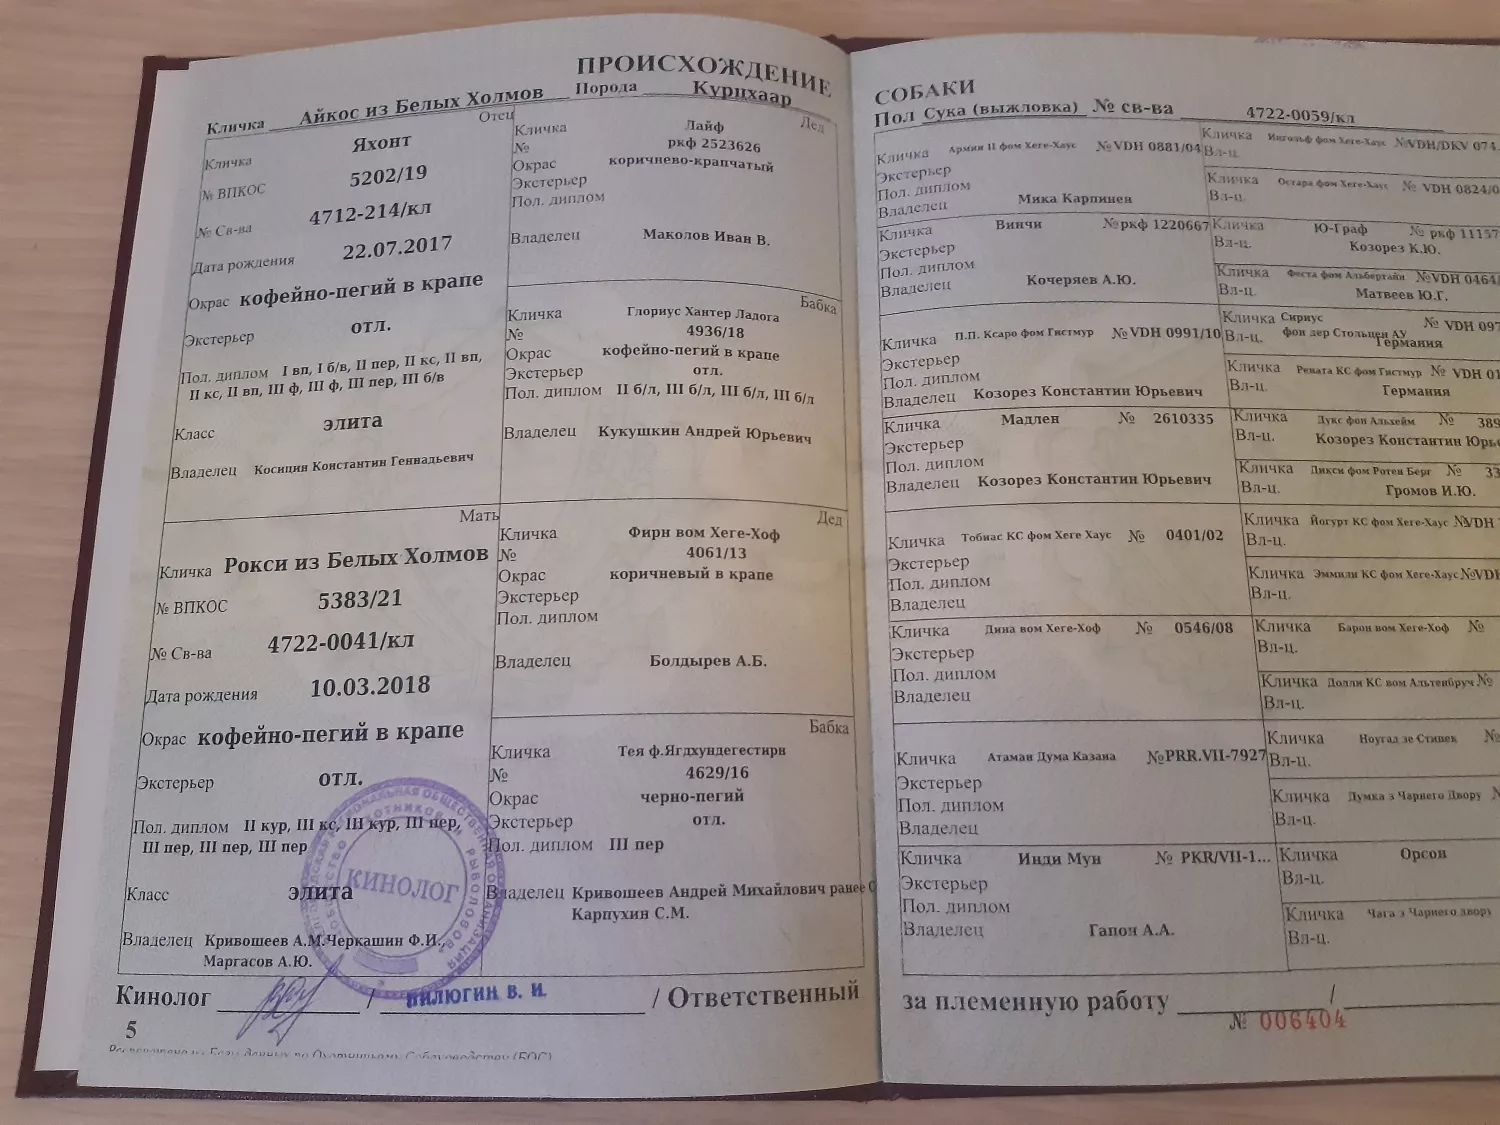 ПРОИСХОЖДЕНИЕ
Кличка Айкос из Белых Холмов Порода Курцхаар
Отец
Кличка Яхонт
№ ВПКОС 5202/19
№ Св-ва 4712-214/кл
Дата рождения 22.07.2017
Окрас кофейно-пегий в крапе
Экстерьер отл.
Пол. диплом I вп, I б/в, II пер, II кс, II вп,
II кс, II вп, III ф, III ф, III пер, III б/в
Класс элита
Владелец Косицин Константин Геннадьевич
Мать
Кличка Рокси из Белых Холмов
№ ВПКОС 5383/21
№ Св-ва 4722-0041/кл
Дата рождения 10.03.2018
Окрас кофейно-пегий в крапе
Экстерьер отл.
Пол. диплом II кур, III кс, III кур, III пер,
III пер, III пер, III пер
Класс элита
Владелец Кривошеев А.М.Черкашин Ф.И.,
Маргасов А.Ю.
Дед
Кличка Лайф
№ ркф 2523626
Окрас коричнево-крапчатый
Экстерьер
Пол. диплом
Владелец Маколов Иван В.
Бабка
Кличка Глориус Хантер Ладога
№ 4936/18
Окрас кофейно-пегий в крапе
Экстерьер отл.
Пол. диплом II б/л, III б/л, III б/л, III б/л
Владелец Кукушкин Андрей Юрьевич
Дед
Кличка Фирн вом Хеге-Хоф
№ 4061/13
Окрас коричневый в крапе
Экстерьер
Пол. диплом
Владелец Болдырев А.Б.
Бабка
Кличка Тея ф.Ягдхундегестирн
№ 4629/16
Окрас черно-пегий
Экстерьер отл.
Пол. диплом III пер
Владелец Кривошеев Андрей Михайлович ранее
Карпухин С.М.
КИНОЛОГ
Кинолог / ПИЛЮГИН В. И. / Ответственный
5
СОБАКИ
Пол Сука (выжловка) № св-ва 4722-0059/кл
Кличка Армин II фом Хеге-Хаус № VDH 0881/04
Экстерьер
Пол. диплом
Владелец Мика Карпинен
Кличка Винчи № ркф 1220667
Экстерьер
Пол. диплом
Владелец Кочеряев А.Ю.
Кличка П.П. Ксаро фом Гистмур № VDH 0991/10
Экстерьер
Пол. диплом
Владелец Козорез Константин Юрьевич
Кличка Мадлен № 2610335
Экстерьер
Пол. диплом
Владелец Козорез Константин Юрьевич
Кличка Тобиас КС фом Хеге Хаус № 0401/02
Экстерьер
Пол. диплом
Владелец
Кличка Дина вом Хеге-Хоф № 0546/08
Экстерьер
Пол. диплом
Владелец
Кличка Атаман Дума Казана № PRR.VII-7927
Экстерьер
Пол. диплом
Владелец
Кличка Инди Мун № PKR/VII-1...
Экстерьер
Пол. диплом
Владелец Гапон А.А.
Кличка Ингольф фом Хеге-Хаус № VDH/DKV 074
Вл-ц.
Кличка Остара фом Хеге-Хаус № VDH 0824/0
Вл-ц.
Кличка Ю-Граф № ркф 11157
Вл-ц. Козорез К.Ю.
Кличка Феста фом Альбертайн № VDH 0464/
Вл-ц. Матвеев Ю.Г.
Кличка Сириус № VDH 097
Вл-ц. фон дер Стольцен Ау
Германия
Кличка Рената КС фом Гистмур № VDH 01
Вл-ц. Германия
Кличка Дукс фон Альхейм № 389
Вл-ц. Козорез Константин Юрь
Кличка Дикси фом Ротен Берг № 33
Вл-ц. Громов И.Ю.
Кличка Йогурт КС фом Хеге-Хаус № VDH
Вл-ц.
Кличка Эммили КС фом Хеге-Хаус № VDH
Вл-ц.
Кличка Барон вом Хеге-Хоф №
Вл-ц.
Кличка Долли КС вом Альтенбруч №
Вл-ц.
Кличка Ноугад зе Стипек №
Вл-ц.
Кличка Думка з Чарнего Двору
Вл-ц.
Кличка Орсон
Вл-ц.
Кличка Чага з Чарнего двору
Вл-ц.
за племенную работу /
№ 006404